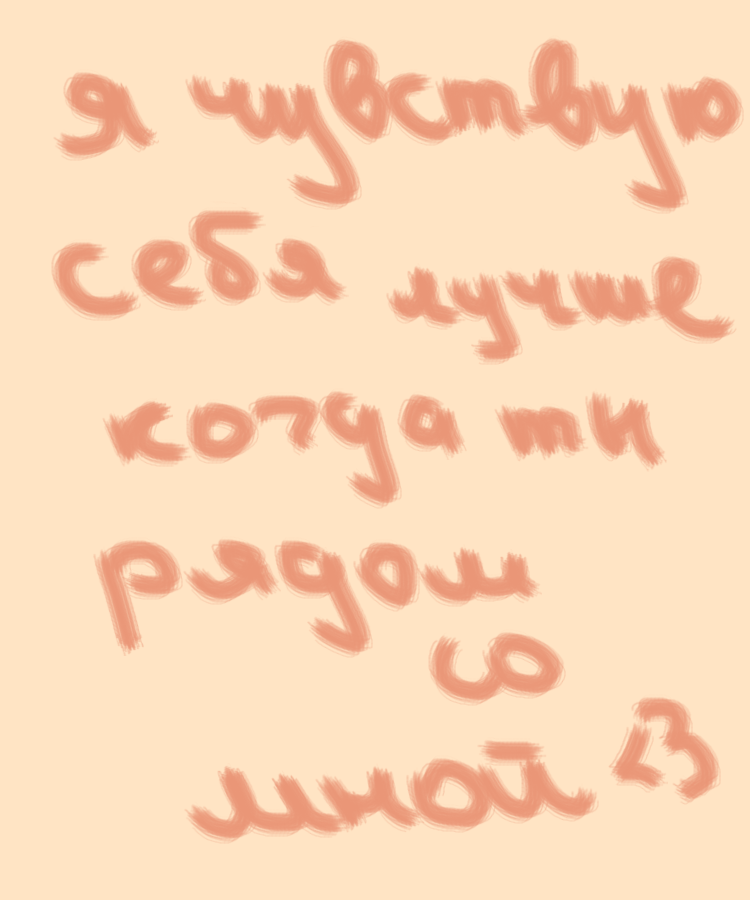 я чувствую
себя лучше
когда ти
рядом
со
мной <3